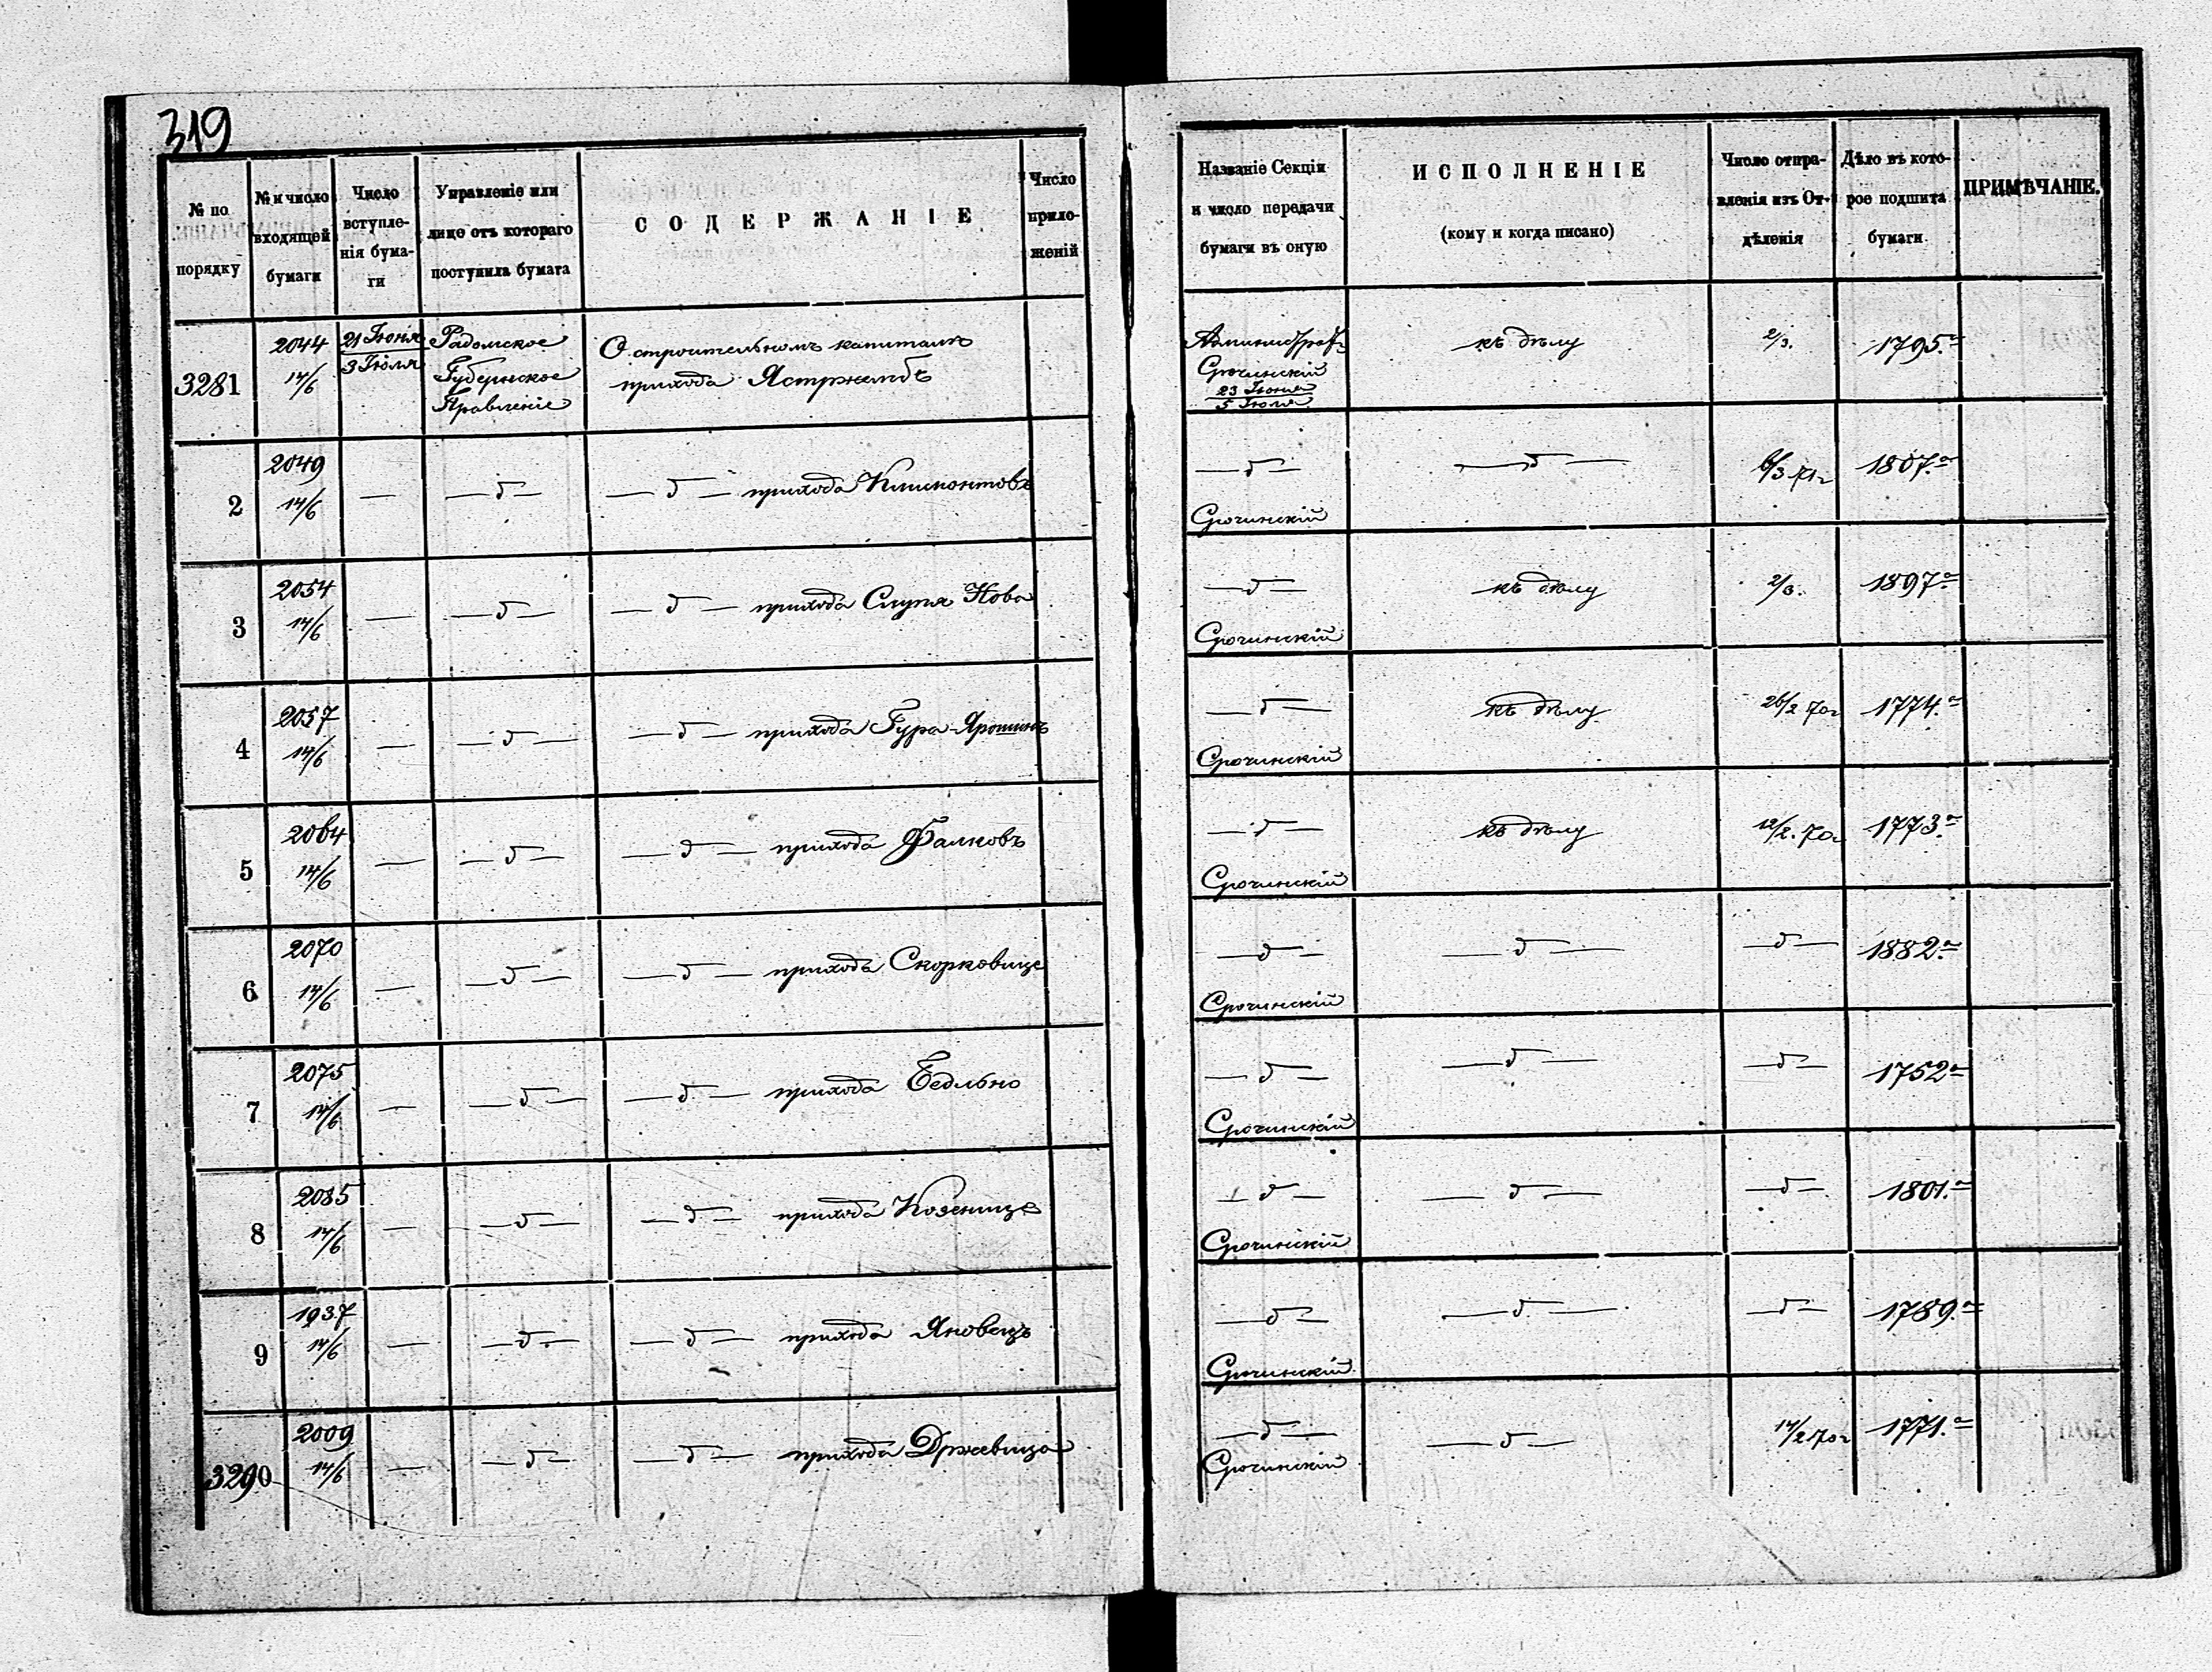 319
№ по порядку
№ и число входящей бумаги
Число вступле-нія бума-ги
Управленіе или лице отъ котораго поступила бумага
СОДЕРЖАНІЕ
Число прило-женій
Названіе Секціи и число передачи бумаги въ оную
ИСПОЛНЕНІЕ
(кому и когда писано)
Число отпра-вленія изъ От-дѣленія
Дѣло въ кото-рое подшита бумаги
ПРИМѢЧАНІЕ.
3281 2044 14/6 21 Іюня 3 Іюля Радомское Губернское Правленіе О строительномъ капиталѣ прихода Ястржембъ
Срочинскій 23 Іюня 5 Іюля къ дѣлу 2/3. 1795.а
2 2049 14/6 — —δ— —δ— прихода Климонтовъ
—δ— Срочинскій —δ— 6/3 71г 1807.а
3 2054 14/6 — —δ— —δ— прихода Слупя Нова
—δ— Срочинскій къ дѣлу 2/3. 1897а
4 2057 14/6 — —δ— —δ— прихода Гура-Ярошинъ
—δ— Срочинскій къ дѣлу 26/2 70г 1774.а
5 2064 14/6 — —δ— —δ— прихода Фалковъ
—δ— Срочинскій къ дѣлу 12/2. 70г 1773.а
6 2070 14/6 — —δ— —δ— прихода Скорковице
—δ— Срочинскій —δ— —δ— 1882.а
7 2075 14/6 — —δ— —δ— прихода Едльно
—δ— Срочинскій —δ— —δ— 1752а
8 2085 14/6 — —δ— —δ— прихода Козенице
—δ— Срочинскій —δ— —δ— 1801.а
9 1937 14/6 — —δ— —δ— прихода Яновецъ
—δ— Срочинскій —δ— —δ— 1789.а
3290 2009 14/6 — —δ— —δ— прихода Држевица
—δ— Срочинскій —δ— 14/2 70г 1771.а